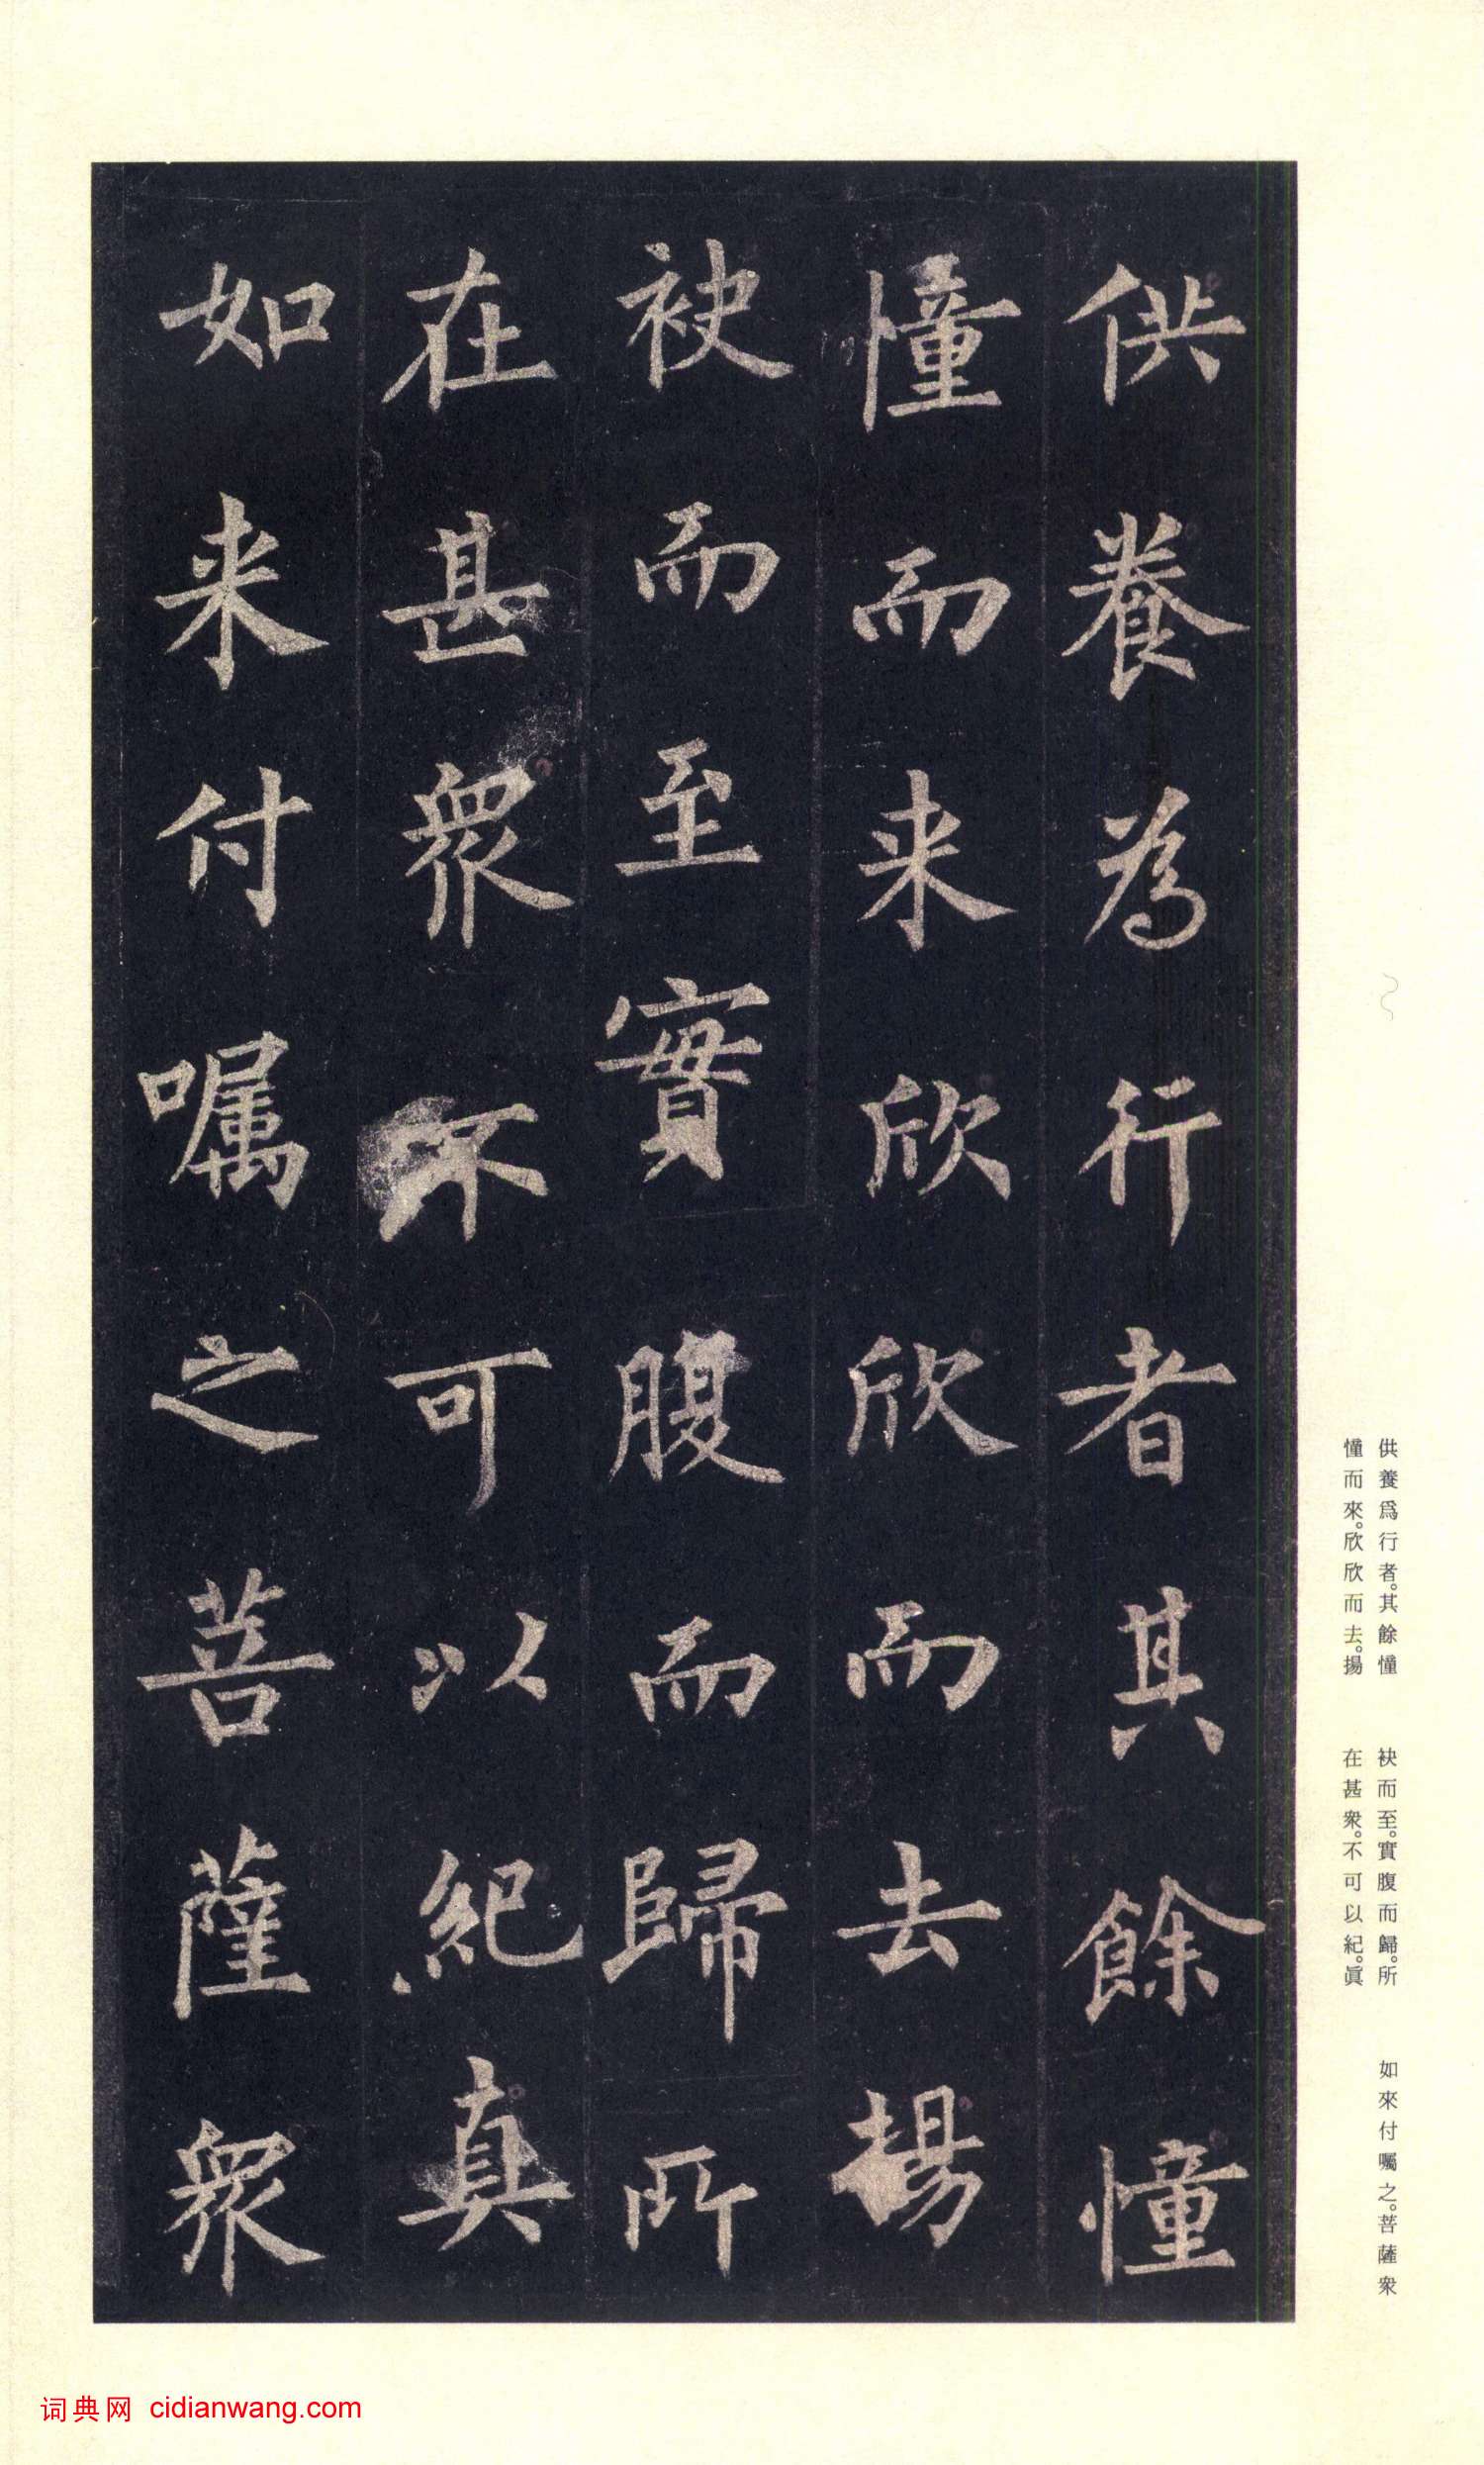 供養為行者其餘憧
憧而来欣欣而去揚
袂而至實腹而歸所
在甚衆不可以紀真
如来付嘱之菩薩衆
供養爲行者。其餘憧
憧而來。欣欣而去。揚
袂而至。實腹而歸。所
在甚衆。不可以紀。眞
如來付囑之。菩薩衆
词典网 cidianwang.com